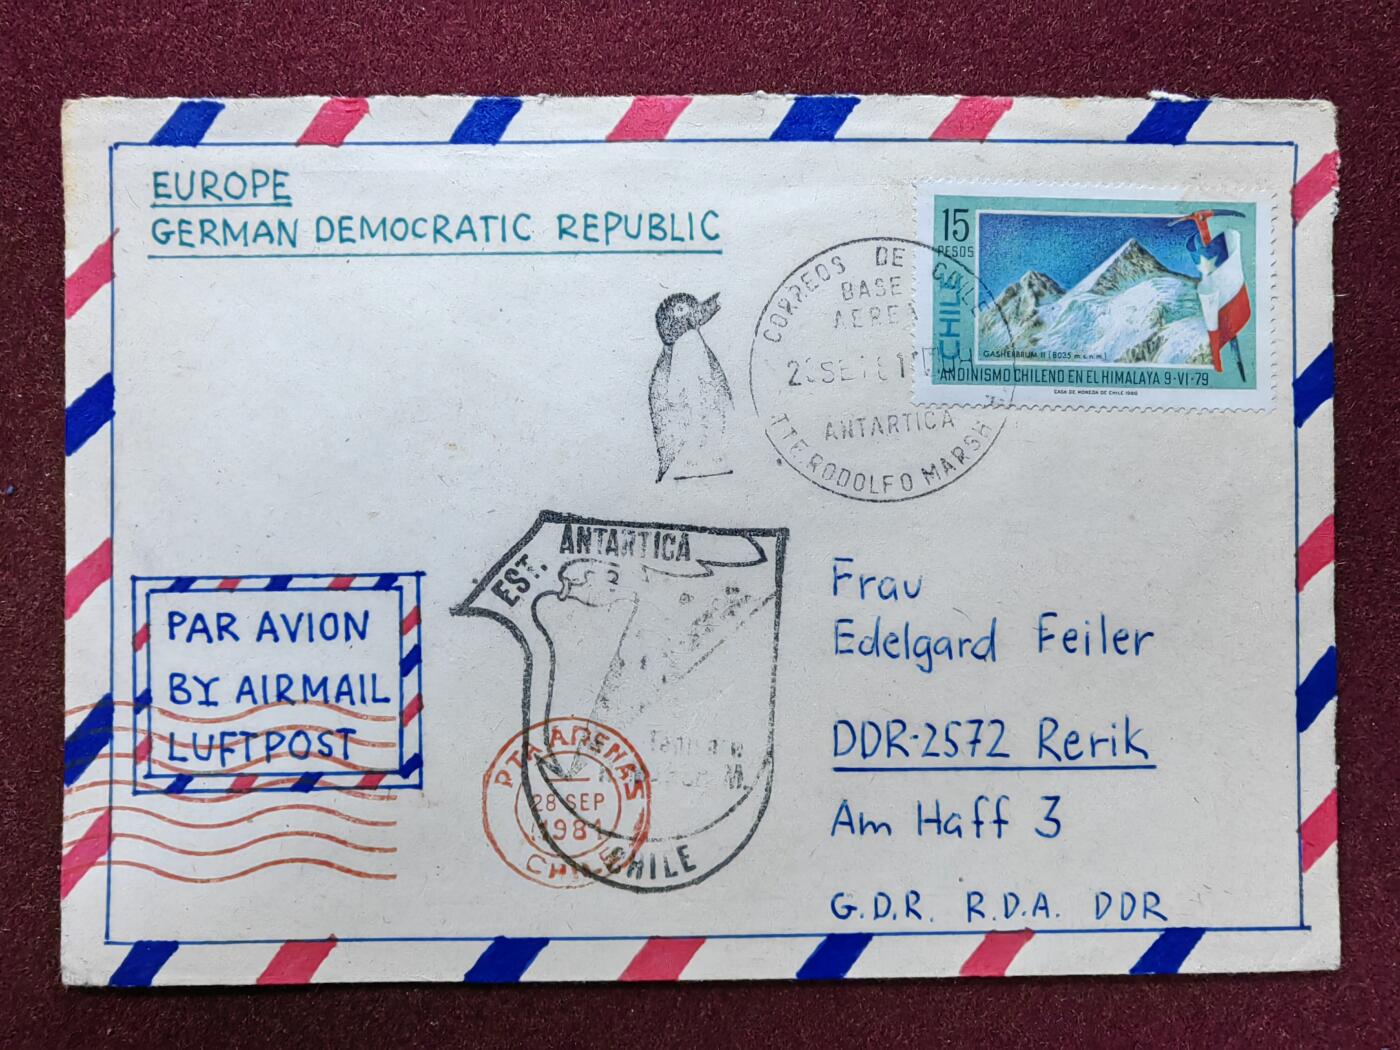 EUROPE
GERMAN DEMOCRATIC REPUBLIC
15
PESOS
CHILE
GASHERBRUM II (8035 m.s.n.m.)
ANDINISMO CHILENO EN EL HIMALAYA 9-VI-79
CASA DE MONEDA DE CHILE 1980
CORREOS DE CHILE
BASE
AEREA
ANTARTICA
TTE RODOLFO MARSH
EST. ANTARTICA
CHILE
PTA ARENAS
28 SEP
1981
CHILE
PAR AVION
BY AIRMAIL
LUFTPOST
Frau
Edelgard Feiler
DDR-2572 Rerik
Am Haff 3
G.D.R. R.D.A. DDR